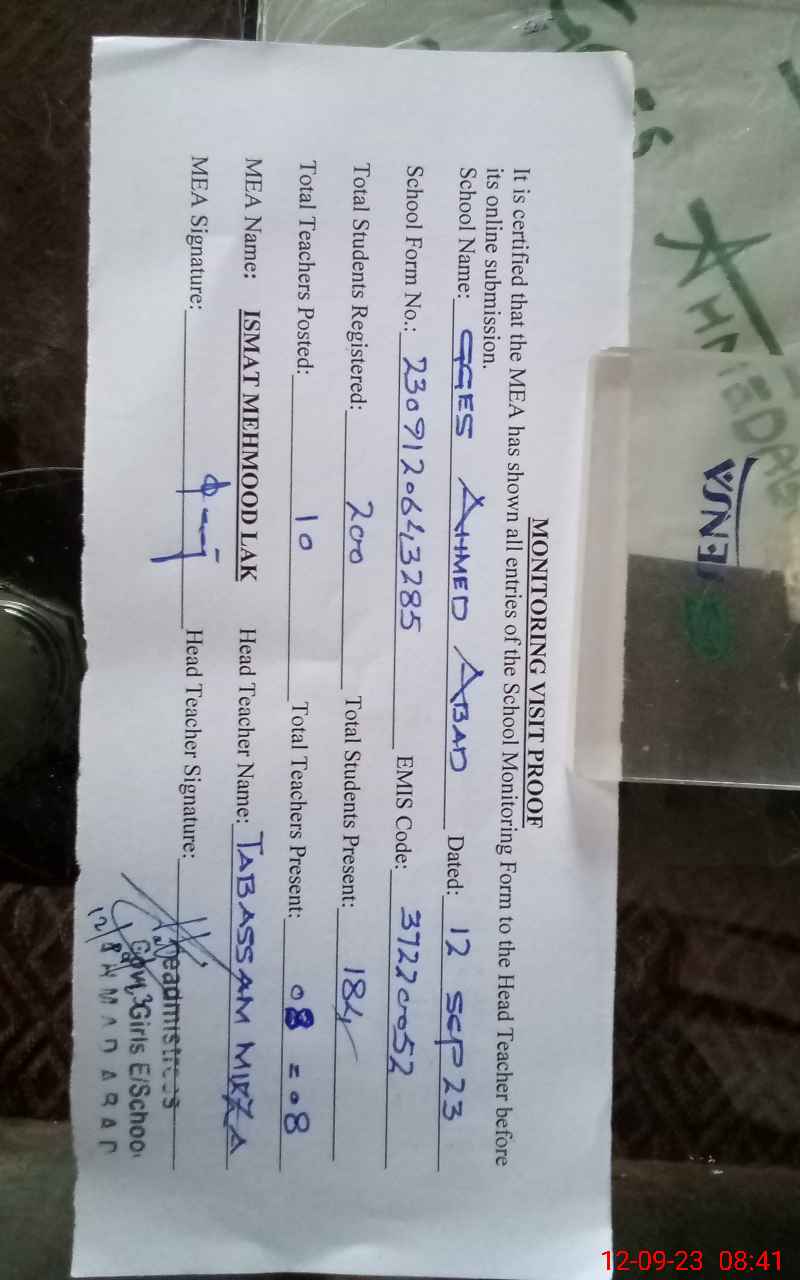 MONITORING VISIT PROOF
It is certified that the MEA has shown all entries of the School Monitoring Form to the Head Teacher before
its online submission.
School Name: GGES AHMED ABAD Dated: 12 SEP 23
School Form No.: 2309120643285 EMIS Code: 37220052
Total Students Registered: 200 Total Students Present: 184
Total Teachers Posted: 10 Total Teachers Present: 08 = 08
MEA Name: ISMAT MEHMOOD LAK Head Teacher Name: TABASSAM MIRZA
MEA Signature: Head Teacher Signature:
Headmistress
Govt. Girls E/School
AHMADABAD
AHMEDABAD
ENSA
12-09-23 08:41